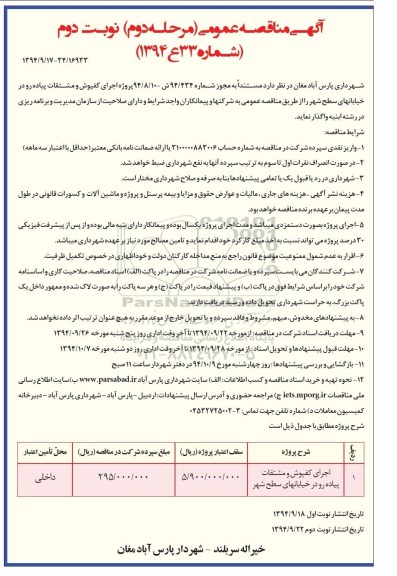 آگهی مناقصه عمومی (مرحله دوم) نوبت دوم
(شماره ۳۳ع۱۳۹۴)
۱۳۹۴/۹/۱۷-۳۴/۱۶۹۳۳
شهرداری پارس آباد مغان در نظر دارد مستنداً به مجوز شماره ۹۴/۴۳۴ش-۹۴/۸/۱۰ پروژه اجرای کفپوش و مشتقات پیاده رو در
خیابانهای سطح شهر را از طریق مناقصه عمومی به شرکتها و پیمانکاران واجد شرایط و دارای صلاحیت از سازمان مدیریت و برنامه ریزی
در رشته ابنیه واگذار نماید.
شرایط مناقصه:
۱-واریز نقدی سپرده شرکت در مناقصه به شماره حساب ۳۱۰۰۰۰۰۸۸۳۰۰۶ یا ارائه ضمانت نامه بانکی معتبر (حداقل با اعتبار سه ماهه)
۲-در صورت انصراف نفرات اول تا سوم به ترتیب سپرده آنها به نفع شهرداری ضبط خواهد شد.
۳-شهرداری در رد یا قبول یک یا تمامی پیشنهادها بنا به صرفه و صلاح شهرداری مختار است.
۴-هزینه نشر آگهی، هزینه های جاری، مالیات و عوارض حقوق و مزایا و بیمه پرسنل و پروژه و ماشین آلات و کسورات قانونی در طول
مدت پیمان بر عهده برنده مناقصه خواهد بود.
۵-اجرای پروژه بصورت دستمزدی میباشد و مدت اجرای پروژه یکسال بوده و پیمانکار دارای بنیه مالی بوده و از پس از پیشرفت فیزیکی
۳۰درصد پروژه می تواند نسبت به اخذ مبلغ کارکرد خود اقدام نماید و تامین مصالح مورد نیاز بر عهده شهرداری میباشد.
۶-اقرار به عدم شمول ممنوعیت موضوع قانون راجع به منع مداخله کارکنان دولت و خوداظهاری در خصوص تکمیل ظرفیت.
۷-شرکت کنندگان می بایست سپرده و یا ضمانت نامه شرکت در مناقصه را در پاکت (الف) اسناد مناقصه، صلاحیت کاری و اساسنامه
شرکت خود را بر اساس شرایط فوق در پاکت (ب) و پیشنهاد قیمت را در پاکت (ج) و هر سه پاکت را به صورت لاک شده و ممهور داخل یک
پاکت بزرگ به حراست شهرداری تحویل داده و رسید دریافت دارند.
۸-به پیشنهادهای مخدوش، مبهم، مشروط و فاقد سپرده و یا تحویل خارج از موعد مقرر به هیچ عنوان ترتیب اثر داده نخواهد شد.
۹-مهلت دریافت اسناد شرکت در مناقصه: از مورخه ۱۳۹۴/۰۹/۲۲ تا آخر وقت اداری روز پنج شنبه مورخه ۱۳۹۴/۰۹/۲۶
۱۰-مهلت قبول پیشنهادها و تحویل اسناد: از مورخه ۱۳۹۴/۰۹/۲۸ تا آخر وقت اداری روز دو شنبه مورخه ۱۳۹۴/۱۰/۷
۱۱-بازگشایی و بررسی پیشنهادها: روز چهارشنبه مورخ ۹۴/۱۰/۹ در دفتر شهردار ساعت ۱۱ صبح
۱۲-نحوه تهیه و خرید اسناد مناقصه و کسب اطلاعات: الف) سایت شهرداری پارس آباد www.parsabad.ir ب) سایت اطلاع رسانی
ملی مناقصات iets.mporg.ir ج) مراجعه حضوری و آدرس ارسال پیشنهادات: اردبیل -پارس آباد - شهرداری پارس آباد - دبیرخانه
کمیسیون معاملات د) شماره تلفن جهت تماس: ۳-۰۴۵۳۲۷۲۵۰۰۲
شرح پروژه مطابق با جدول ذیل است
ردیف شرح پروژه سقف اعتبار پروژه (ریال) مبلغ سپرده شرکت در مناقصه (ریال) محل تأمین اعتبار
۱ اجرای کفپوش و مشتقات پیاده رو در خیابانهای سطح شهر ۵/۹۰۰/۰۰۰/۰۰۰ ۲۹۵/۰۰۰/۰۰۰ داخلی
تاریخ انتشار نوبت اول ۱۳۹۴/۹/۱۸
تاریخ انتشار نوبت دوم ۱۳۹۴/۹/۲۲
خیراله سربلند - شهردار پارس آباد مغان